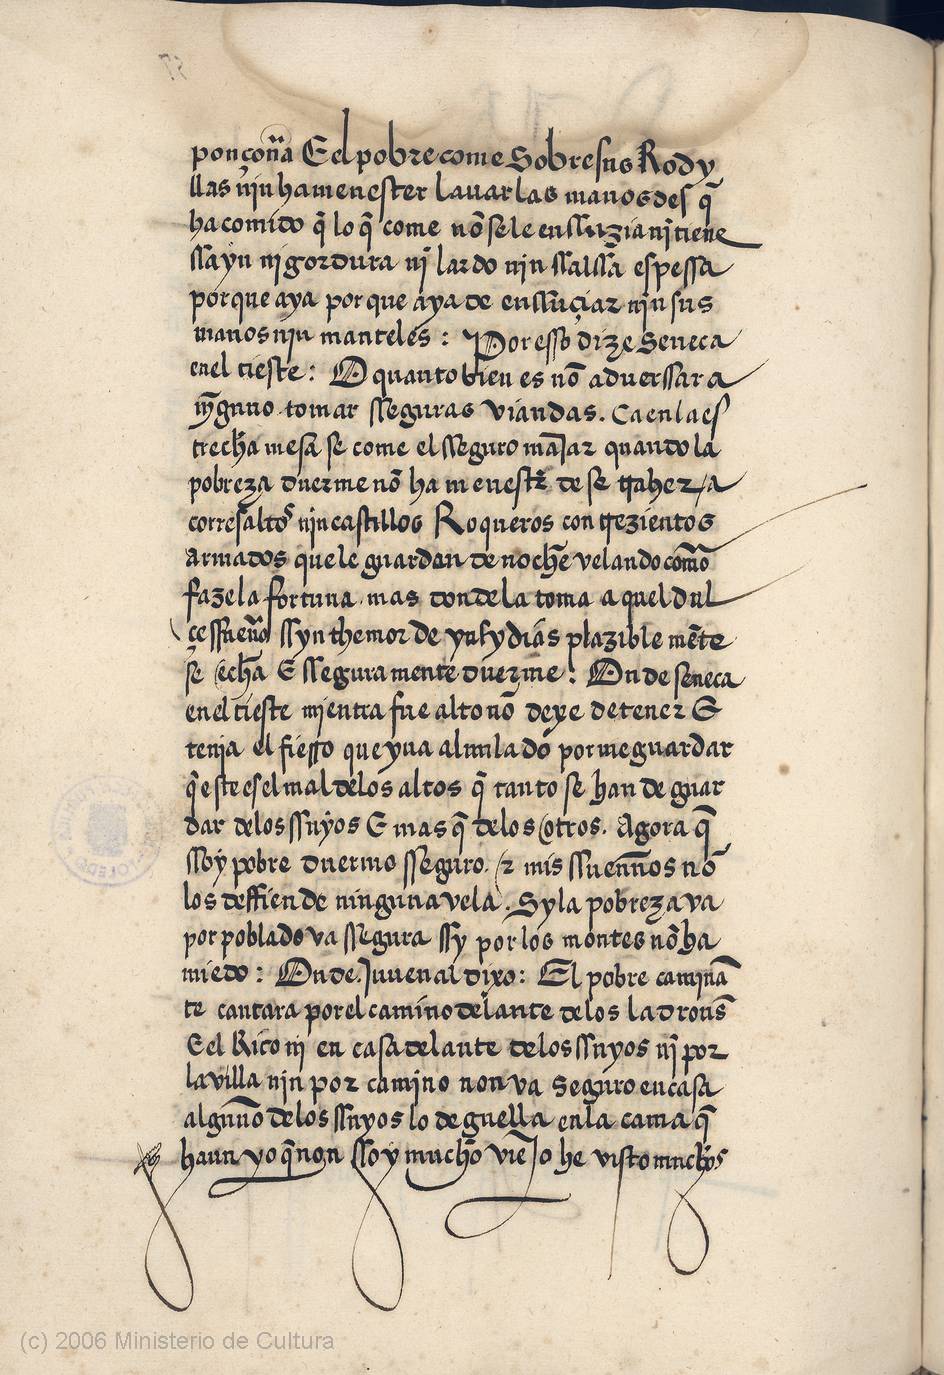 ponçoña E el pobre come Sobre sus Rody
llas njn ha menester lauar las manos des q̄
ha comido q̄ lo q̄ come nō se le enssuzia nj̄ tiene
ssayn nj gordura nj̄ lardo njn ssalssa espessa
por que aya por que aya de enssuçiar njn sus
manos njn manteles : Por esso dize Seneca
en el tieste : O quanto bien es nō aduerssar a
nj̄guno tomar sseguras viandas . Ca en la es
trecha mesa se come el sseguro māJar quando la
pobreza duerme nō ha menester de se traher a
corres altos njn castillos Roqueros con trezientos
armados que le guardan de noche velando como
faze la fortuna mas donde la toma aquel dul
çe ssueño ssyn themor de ynsydias plazible mēte
se echa E ssegura mente duerme : Onde seneca
en el tieste mientra fue alto nō dexe de tener E
tenja el fierro que yua al mi lado por me guardar
q̄ este es el mal de los altos q̄ tanto se han de guar
dar de los ssuyos E mas q̄ de los otros . Agora q̄
ssoy pobre duermo sseguro . E mis ssuennos nō
los deffiende ninguna vela . Sy la pobreza va
por poblado va ssegura ssy por los montes nō ha
miedo : Onde Juvenal dixo : El pobre caminā
te cantara por el camino delante de los ladrons
E el Rico nj en casa delante de los ssuyos nj̄ por
la villa njn por camino non va seguro en casa
alguno de los ssuyos lo deguella en la cama q̄
haun yo q̄ non ssoy mucho vieJo he visto muchos
(c) 2006 Ministerio de Cultura